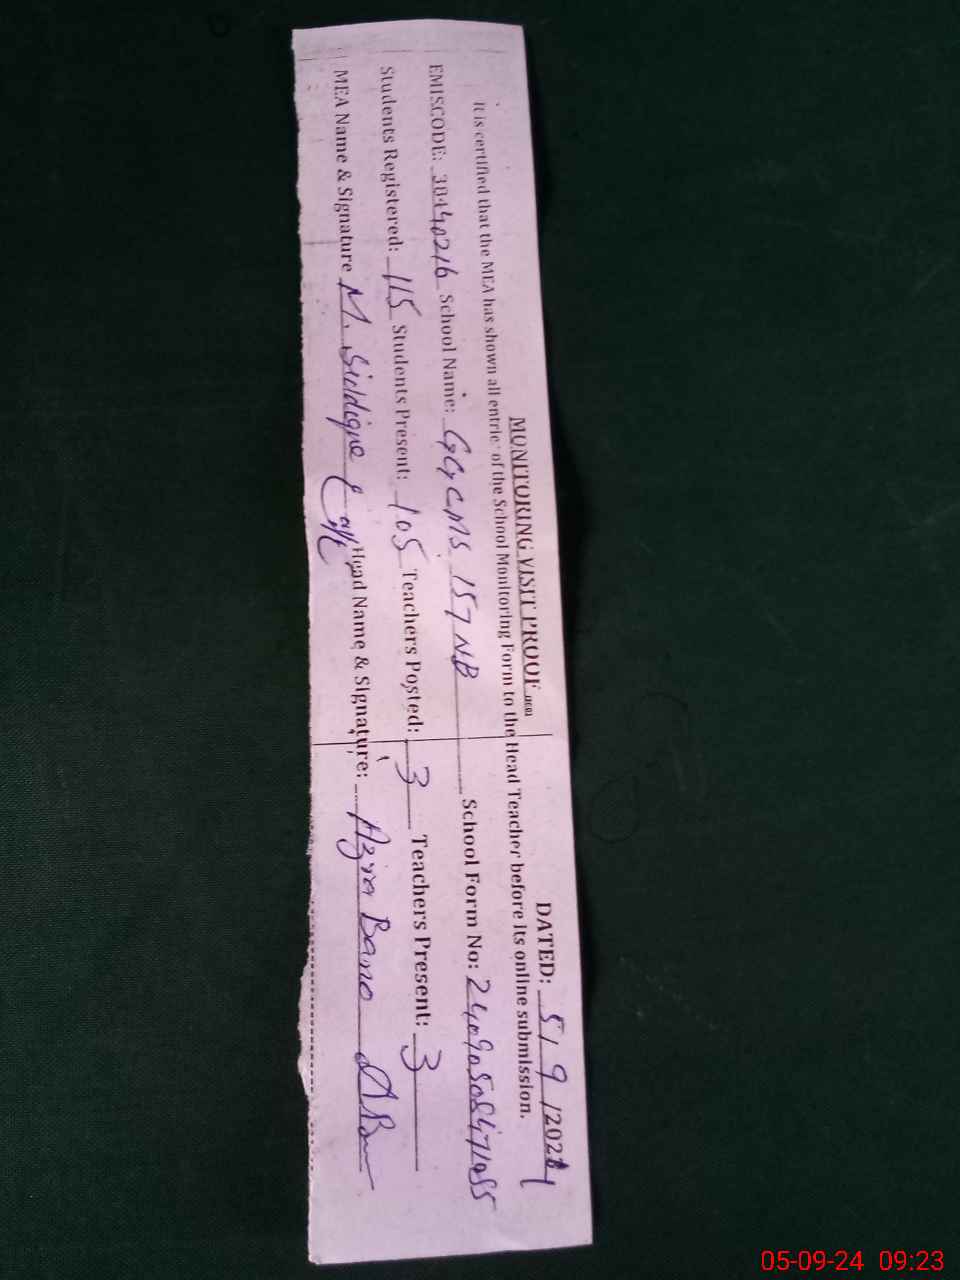 MONITORING VISIT PROOF
DATED: 5/ 9 /2024
It is certified that the MEA has shown all entries of the School Monitoring Form to the Head Teacher before its online submission.
EMISCODE: 38440216 School Name: GGCMS 157 NB School Form No:
Students Registered: 115 Students Present: 105 Teachers Posted: 3 Teachers Present: 3
MEA Name & Signature M. Siddique Head Name & Signature: Azra Bano
05-09-24 09:23